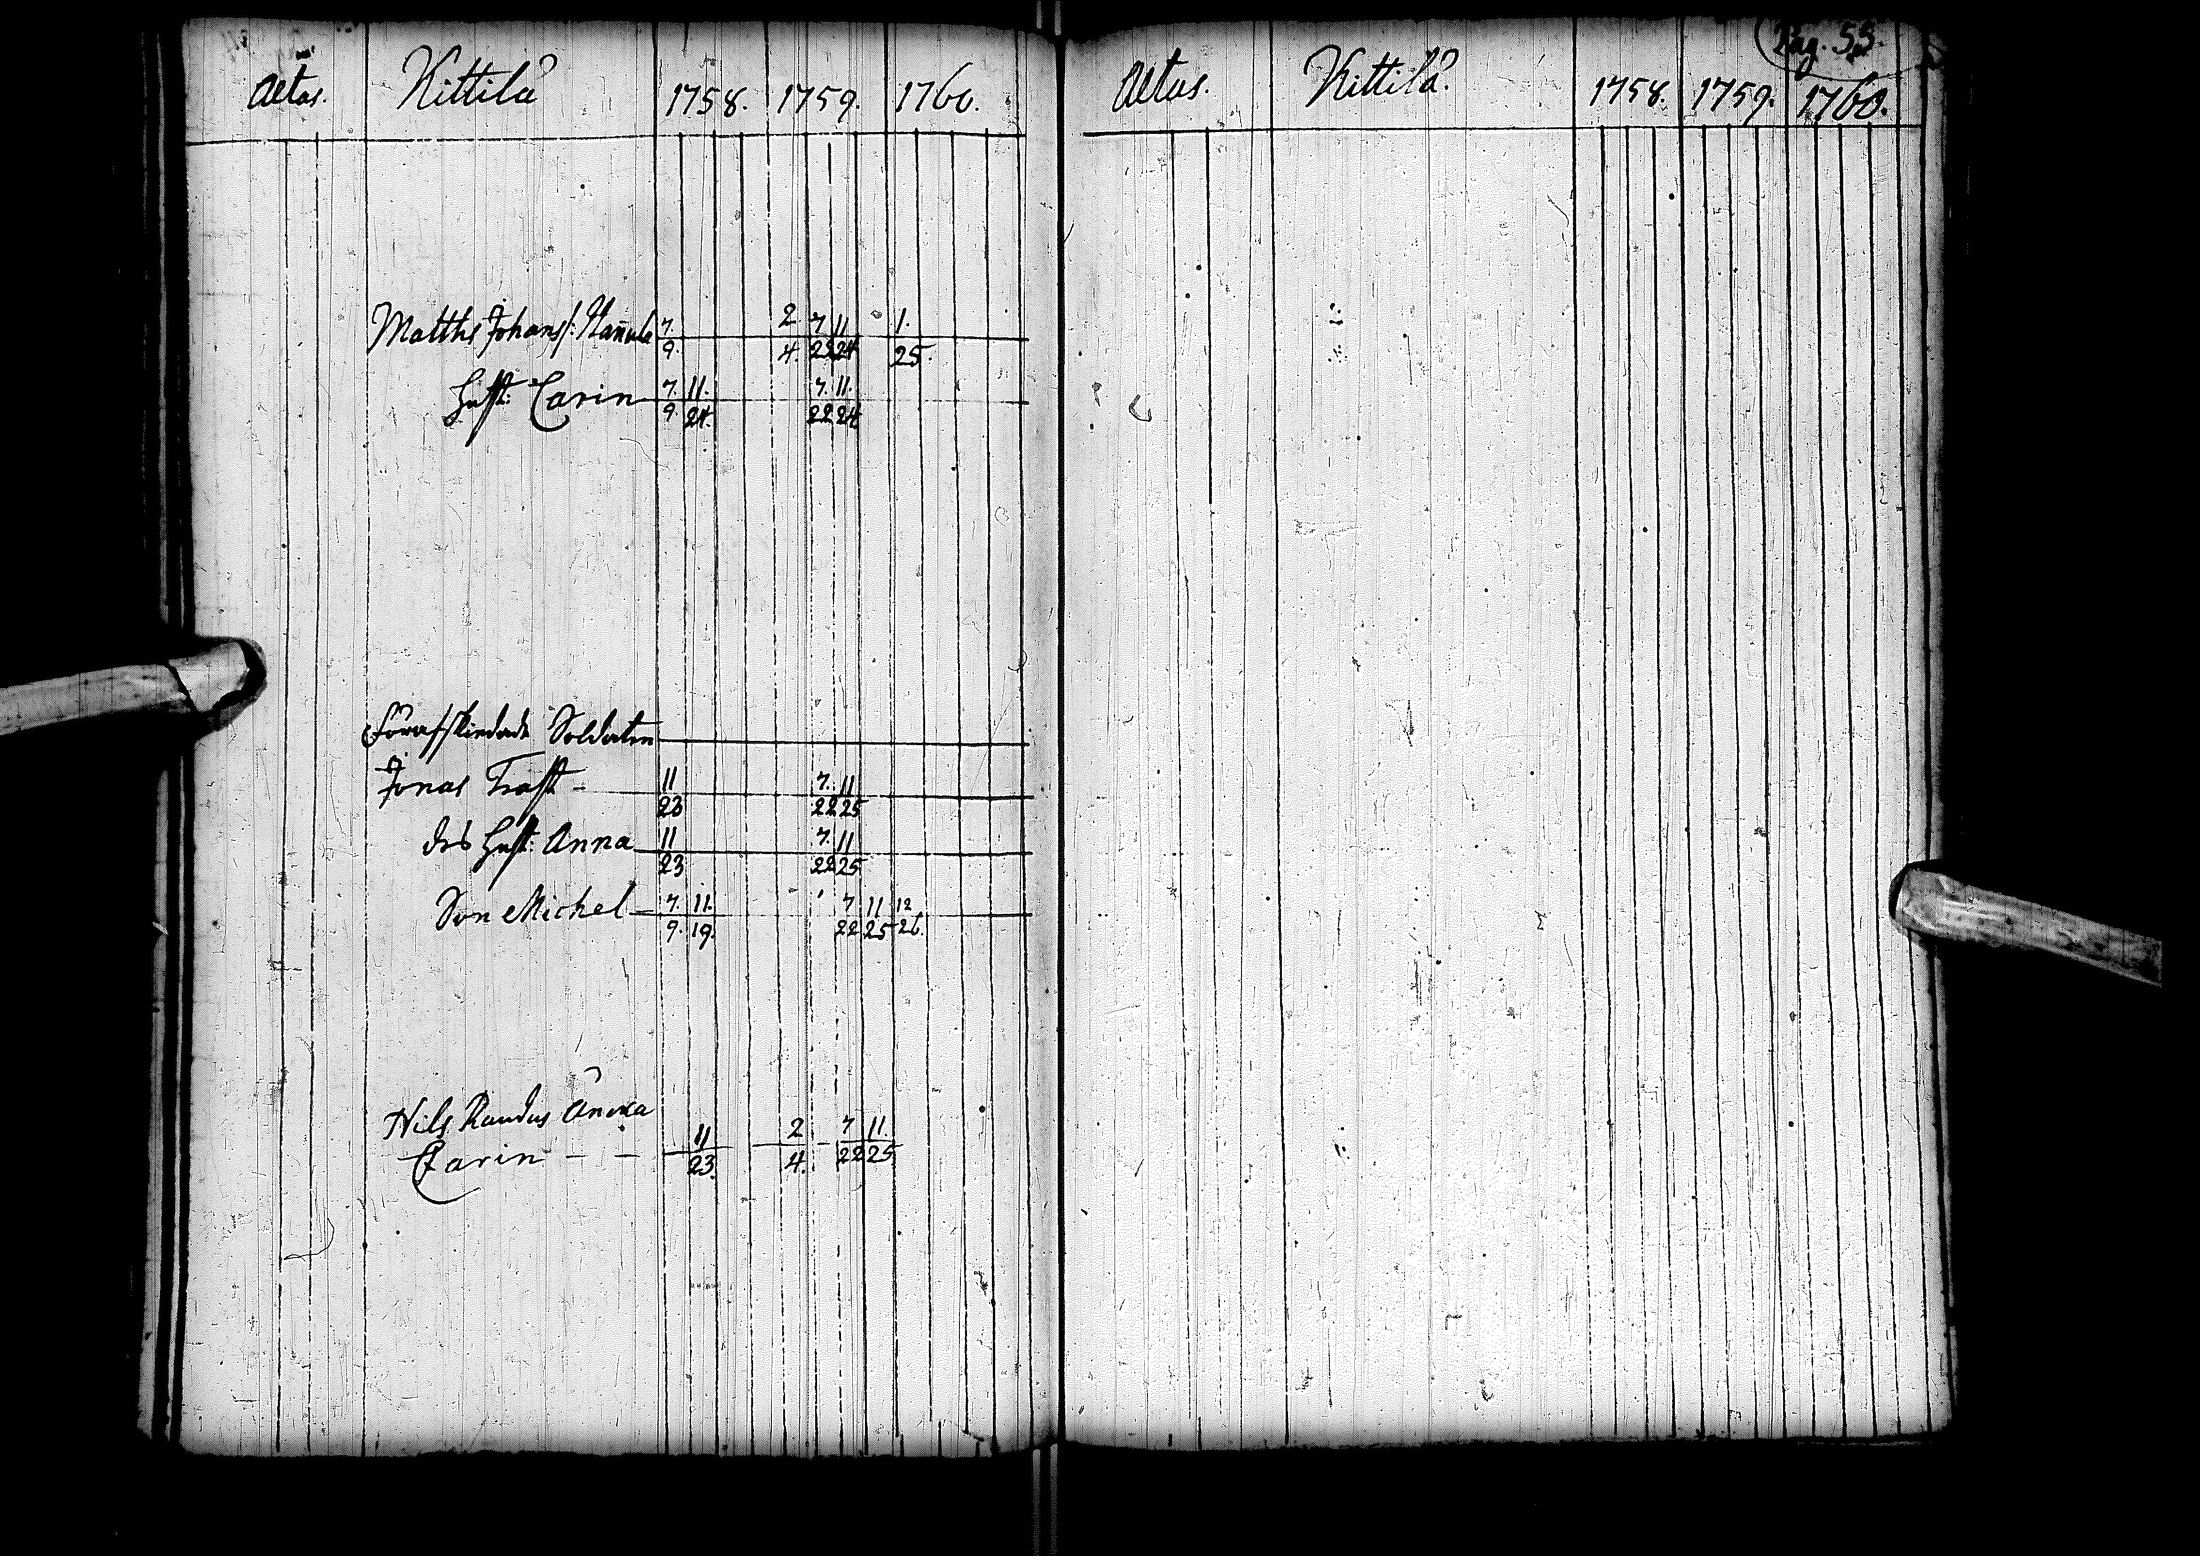 Aetas. Kittilå 1758. 1759. 1760.
Matths Johanss: Hañula 7. 2 7 11 1.
9. 4. 22 24 25.
Hust: Carin 7. 11. 7. 11.
9 24. 22 24
Förafskiedade Soldaten
Jonas Trast - 11 7. 11
23 22 25
des Hust: Anna 11 7. 11
23 22 25
Son Michel 7. 11. 7 11 12
9. 19. 22 25 26.
Nils Raudus Äncka
Carin - - 11 2 7 11
23. 4. 22 25
Pag. 55.
Aetas. Kittilå. 1758. 1759. 1760.